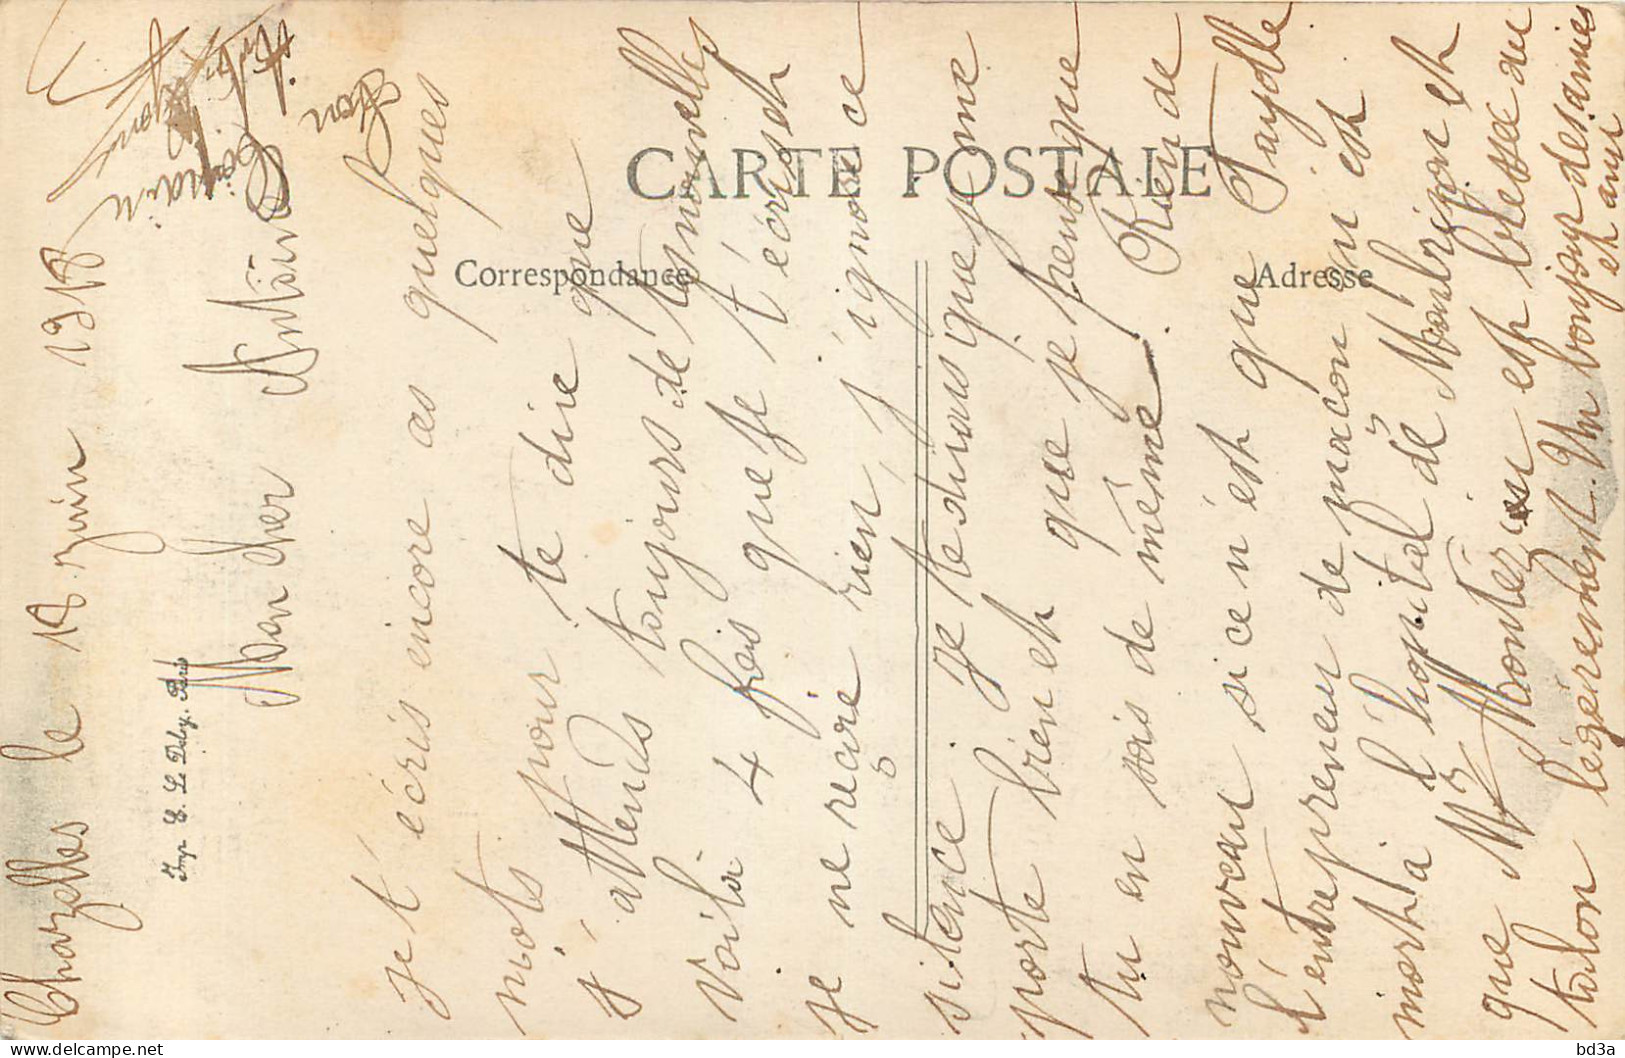 Chazelles le 18 juin 1918
Mon cher Antoine
je t'écris encore as quelques
mots pour te dire que
j'attends toujours de tes nouvelles
Voila 4 fois que je t'écris et
je ne recoie rien j'ignore ce
silence. je te dirais que je me
porte bien et que je pense que
tu en sois de même. Rien de
nouveau si ce n'est que Fayolle
l'entrepreneur de macon en est
mort à l'hopital de Montbrison et
que Mr Montez est blessée au
talon légèrement. Un bonjour des amies
et ami
Ton
Cousin
CARTE POSTALE
Correspondance
Adresse
Imp. E. Le Deley. Paris
bd3a